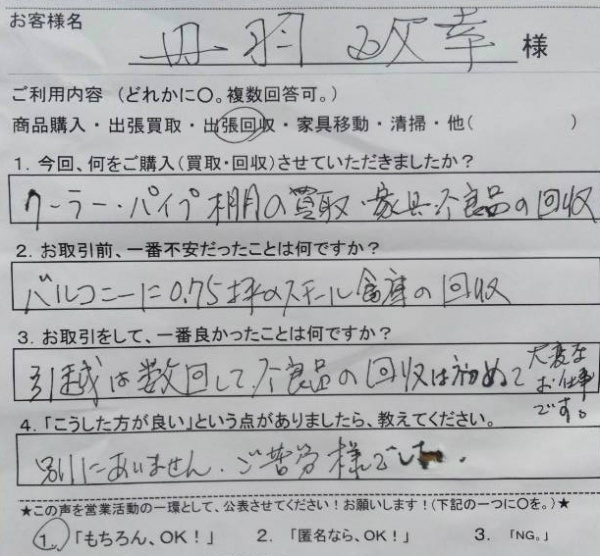 お客様名
丹羽 政幸 様
ご利用内容 (どれかに〇。複数回答可。)
商品購入・出張買取・出張回収・家具移動・清掃・他( )
1. 今回、何をご購入(買取・回収)させていただきましたか?
クーラー・パイプ棚の買取・家具・不良品の回収
2. お取引前、一番不安だったことは何ですか?
バルコニーに0.75坪のスチール倉庫の回収
3. お取引をして、一番良かったことは何ですか?
引越は数回して不良品の回収は初めて大変な
お仕事
です。
4. 「こうした方が良い」という点がありましたら、教えてください。
別にありません。ご苦労様でした。
★この声を営業活動の一環として、公表させてください!お願いします!(下記の一つに〇を。)★
1. 「もちろん、OK!」 2. 「匿名なら、OK!」 3. 「NG。」